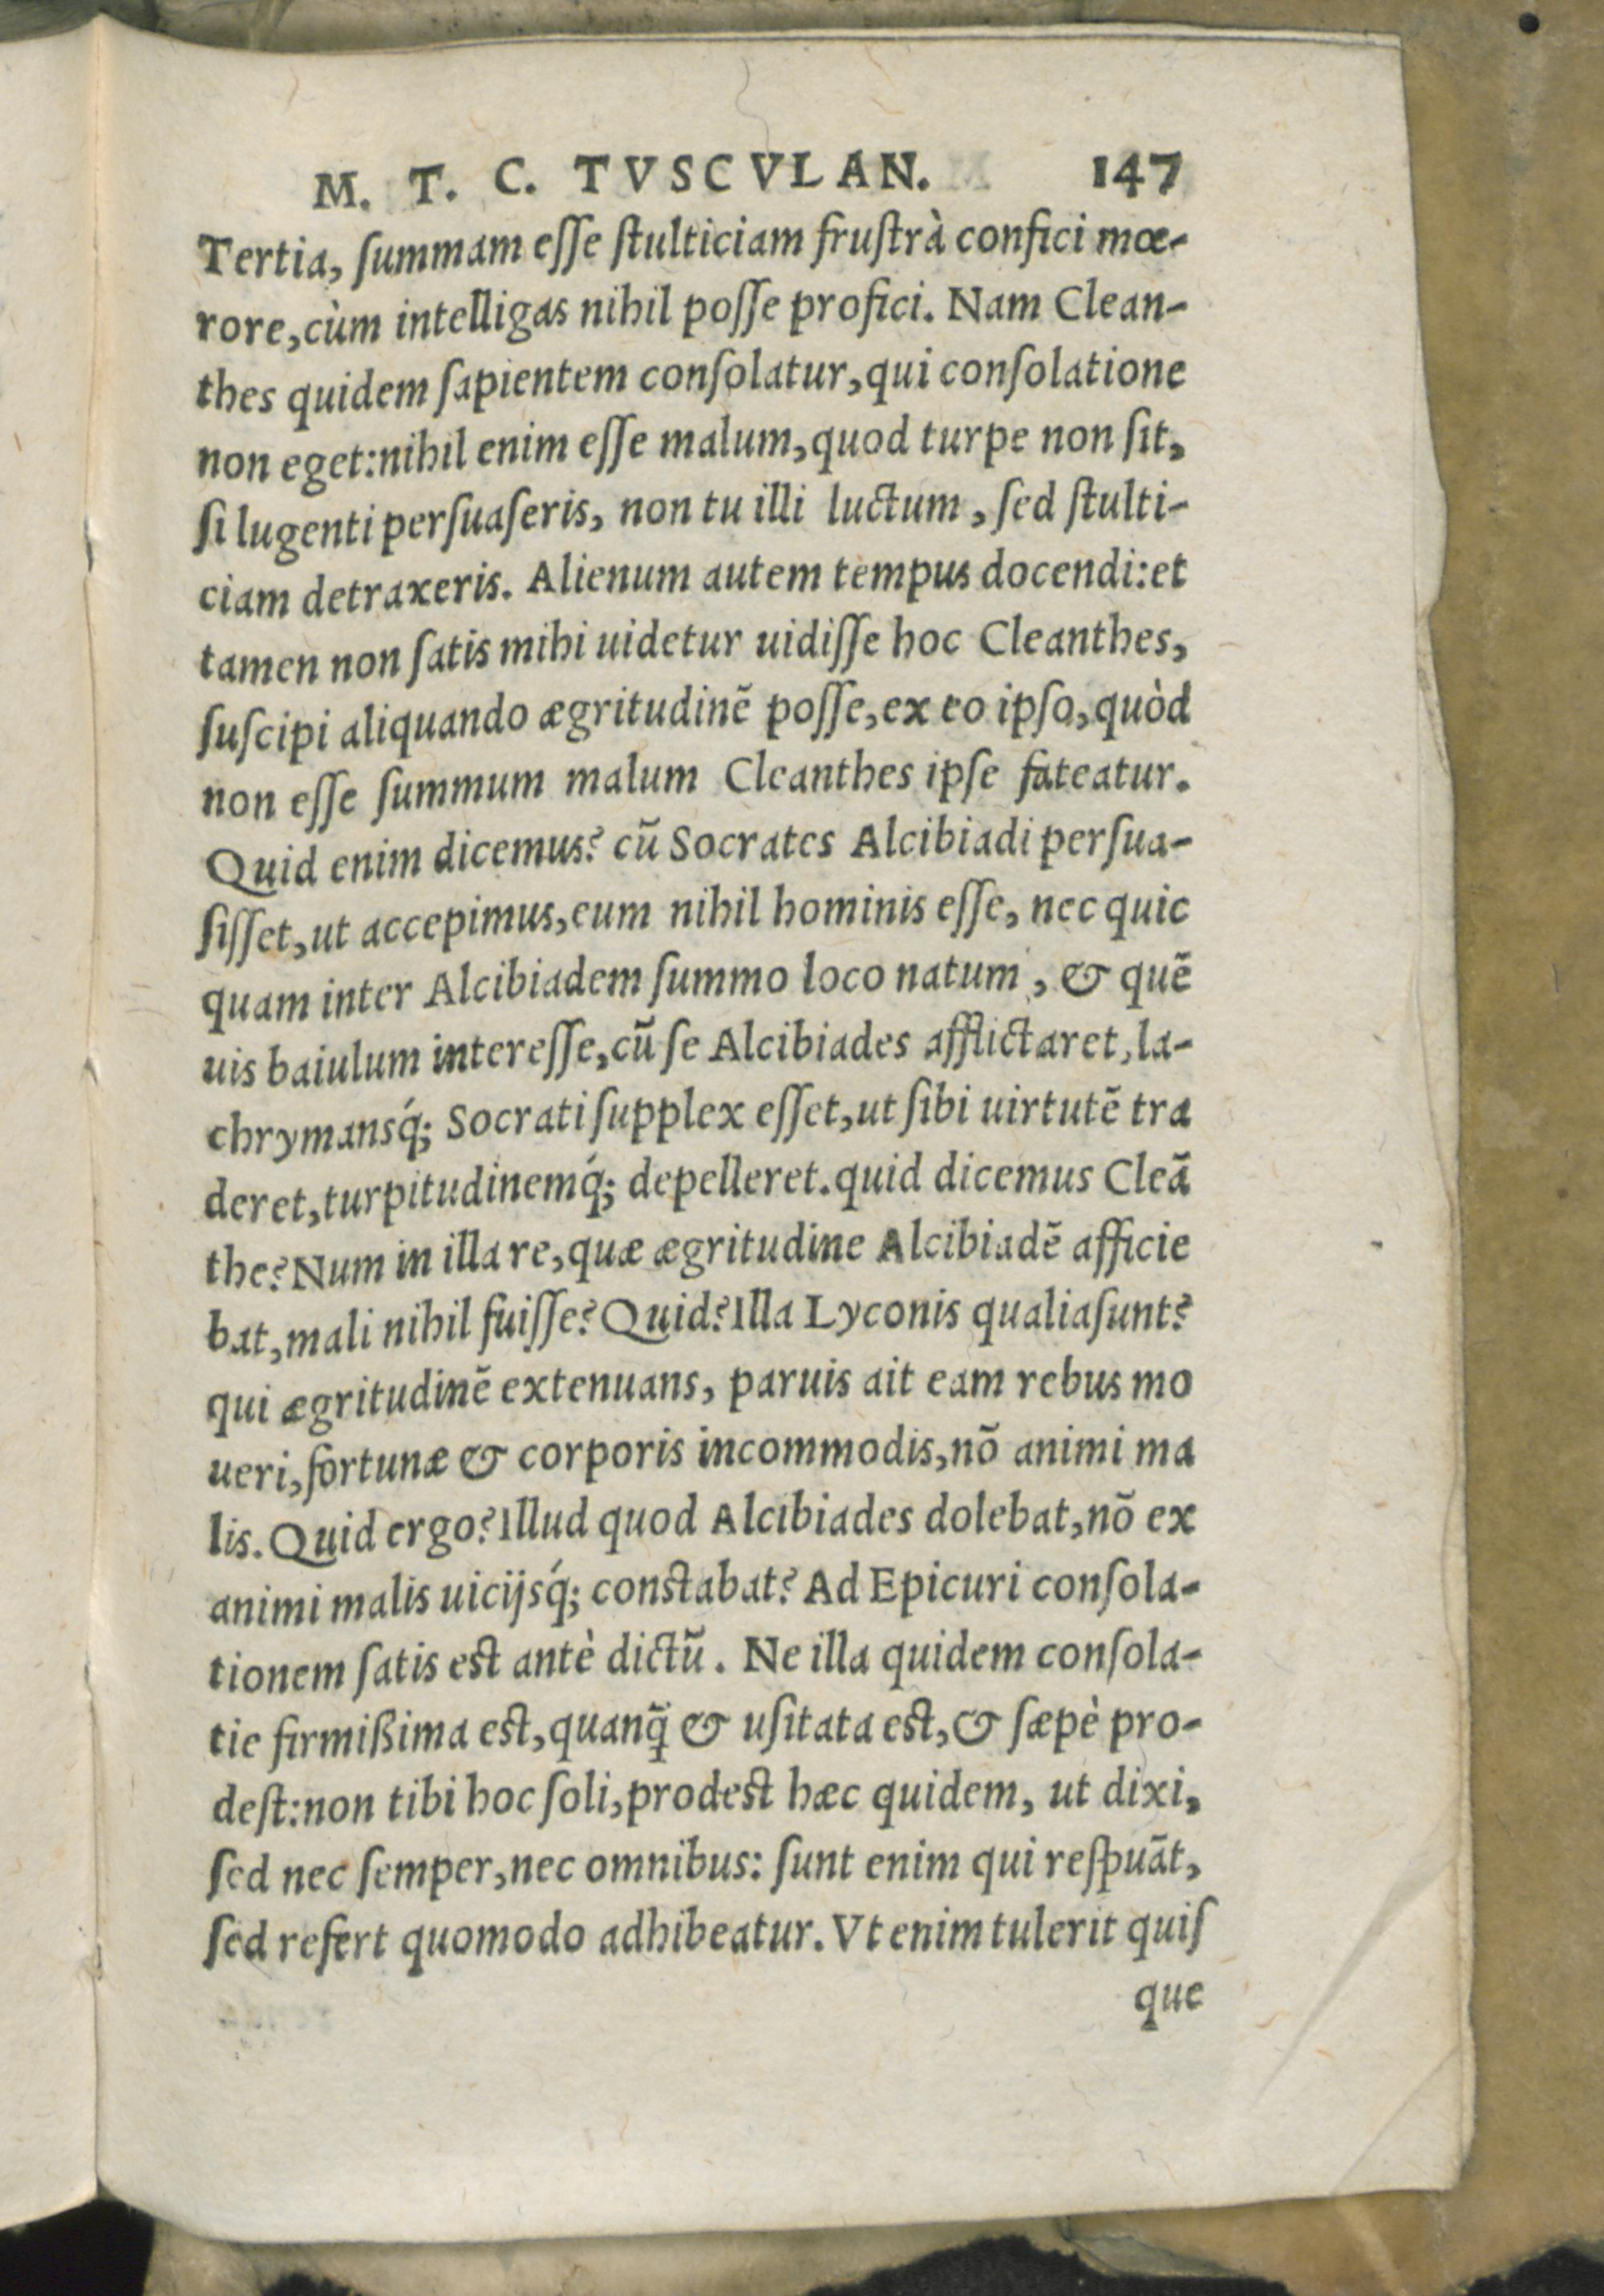 M. T. C. TVSCVLAN. 147
Tertia, ſummam eſſe ſtulticiam fruſtrà confici mœ-
rore,cùm intelligas nihil poſſe profici. Nam Clean-
thes quidem ſapientem conſolatur,qui conſolatione
non eget:nihil enim eſſe malum,quod turpe non ſit,
ſi lugenti perſuaſeris, non tu illi luctum, ſed ſtulti-
ciam detraxeris. Alienum autem tempus docendi:et
tamen non ſatis mihi uidetur uidiſſe hoc Cleanthes,
ſuſcipi aliquando ægritudinẽ poſſe,ex eo ipſo,quòd
non eſſe ſummum malum Cleanthes ipſe fateatur.
Quid enim dicemus? cũ Socrates Alcibiadi perſua-
ſiſſet,ut accepimus,eum nihil hominis eſſe, nec quic
quam inter Alcibiadem ſummo loco natum, & quẽ
uis baiulum intereſſe,cũ ſe Alcibiades afflictaret,la-
chrymansq́; Socrati ſupplex eſſet,ut ſibi uirtutẽ tra
deret,turpitudinemq́; depelleret.quid dicemus Cleã
the?Num in illa re,quæ ægritudine Alcibiadẽ afficie
bat,mali nihil fuiſſe?Quid?Illa Lyconis qualiaſunt?
qui ægritudinẽ extenuans, paruis ait eam rebus mo
ueri,fortunæ & corporis incommodis,nõ animi ma
lis.Quid ergo?Illud quod Alcibiades dolebat,nõ ex
animi malis uicijsq́; conſtabat?Ad Epicuri conſola-
tionem ſatis eſt antè dictũ. Ne illa quidem conſola-
tie firmißima eſt,quanq̃ & uſitata eſt,& ſæpè pro-
deſt:non tibi hoc ſoli,prodeſt hæc quidem, ut dixi,
ſed nec ſemper,nec omnibus: ſunt enim qui reſpuãt,
ſed refert quomodo adhibeatur. Vt enim tulerit quiſ
que